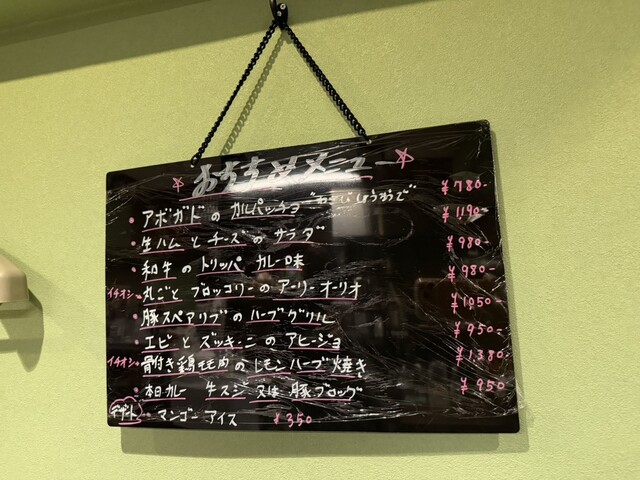 ☆ おすすめメニュー ☆
・アボガドのカルパッチョ "わさびじょうゆで" ¥780-
・生ハムとチーズのサラダ ¥1190-
・和牛のトリッパ カレー味 ¥980-
イチオシ→丸ごとブロッコリーのアーリーオーリオ ¥980-
・豚スペアリブのハーブグリル ¥1050-
・エビとズッキーニのアヒージョ ¥950-
イチオシ→骨付き鶏モモ肉のレモンハーブ焼き ¥1380-
・本日カレー 牛スジ 又は 豚ブロック ¥950
デザート・マンゴーアイス ¥350